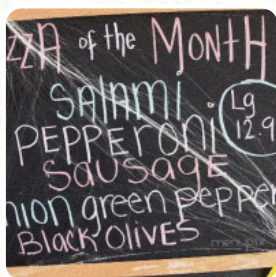 ZZA of the MONTH
SALAMI .
Lg
12.9
PEPPERONI
SAUSAGE
nion green pepper
Black OLIVES